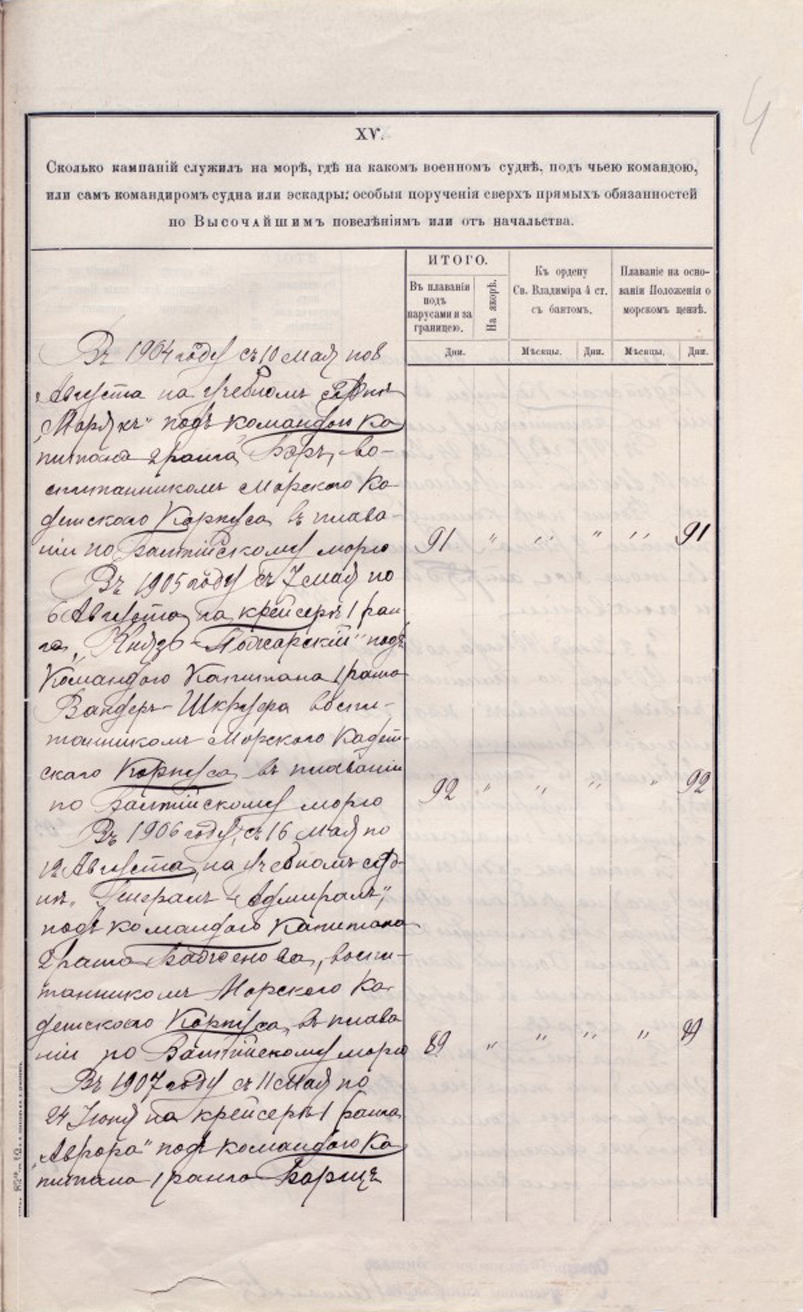 4
XV.
Сколько кампаній служилъ на морѣ, гдѣ на какомъ военномъ суднѣ, подъ чьею командою,
или самъ командиромъ судна или эскадры; особыя порученія сверхъ прямыхъ обязанностей
по Высочайшимъ повелѣніямъ или отъ начальства.
ИТОГО.
Въ плаваніи подъ парусами и за границею.
На якорѣ.
Къ ордену Св. Владиміра 4 ст. съ бантомъ.
Плаваніе на основаніи Положенія о морскомъ цензѣ.
Дни.
Мѣсяцы.
Дни.
Мѣсяцы.
Дни.
Въ 1904 году съ 10 Мая по 8
Августа на учебномъ суднѣ
„Морякъ“ подъ командою Ка-
питана 2 ранга Бэръ, во-
спитанникомъ Морского Ка-
детскаго Корпуса въ плава-
ніи по Балтійскому морю 91 „ „ „ „ 91
Въ 1905 году съ 7 Мая по
6 Августа на крейсерѣ 1 ран-
га „Князь-Пожарскій“ подъ
Командою Капитана 1 ранга
Вандеръ-Шкруфа воспи-
танникомъ Морского Кадет-
скаго Корпуса въ плаваніи
по Балтійскому морю 92 „ „ „ „ 92
Въ 1906 году, съ 16 Мая по
12 Августа, на учебномъ суд-
нѣ „Генералъ-Адмиралъ“,
подъ командою Капитана
2 ранга, воспи-
танникомъ Морского Ка-
детскаго Корпуса, въ плава-
ніи по Балтійскому морю 89 „ „ „ „ 89
Въ 1907 году съ 11 Мая по
24 Іюня на крейсерѣ 1 ранга
„Аврора“ подъ командою Ка-
питана 1 ранга Барщъ